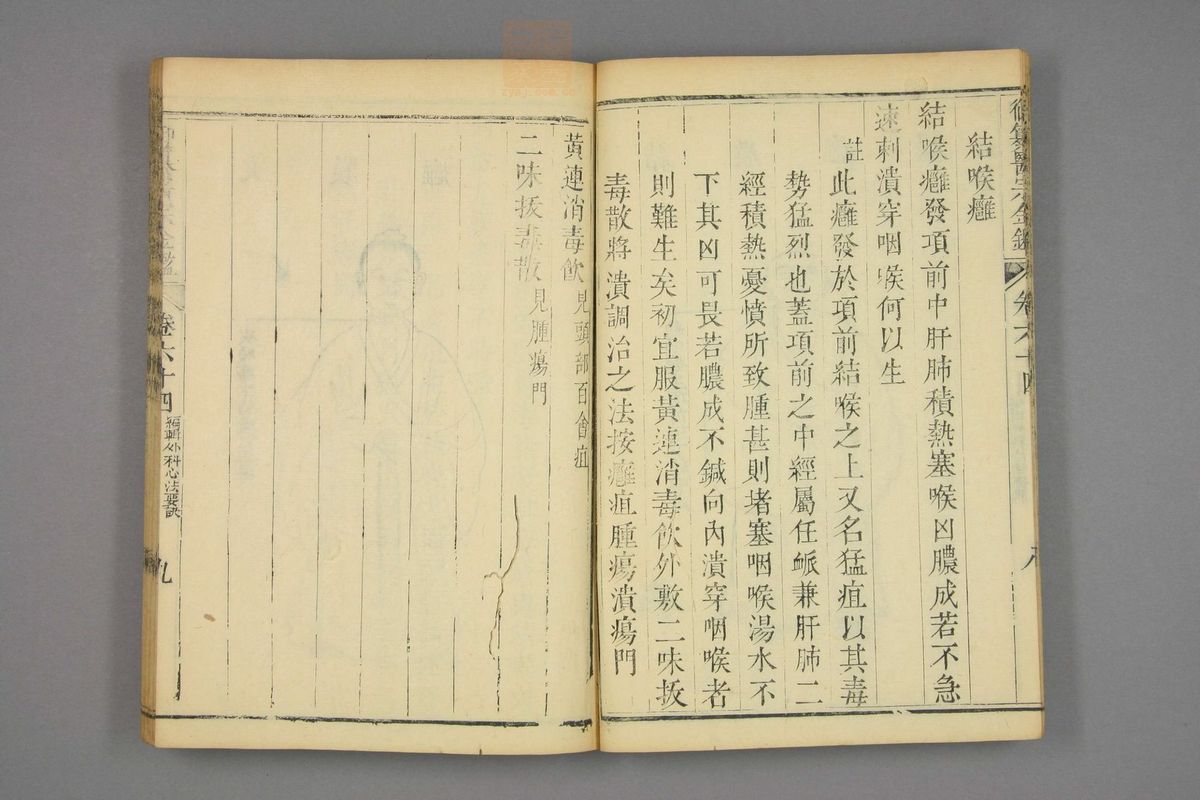 御纂醫宗金鑑
卷六十四
八
結喉癰
結喉癰發項前中肝肺積熱塞喉凶膿成若不急
速刺潰穿咽喉何以生
註此癰發於項前結喉之上又名猛疽以其毒
勢猛烈也蓋項前之中經屬任脈兼肝肺二
經積熱憂憤所致腫甚則堵塞咽喉湯水不
下其凶可畏若膿成不鍼向內潰穿咽喉者
則難生矣初宜服黃連消毒飲外敷二味拔
毒散將潰調治之法按癰疽腫瘍潰瘍門
黃連消毒飲見頭部百會疽
二味拔毒散見腫瘍門
卷六十四
編輯外科心法要訣
九